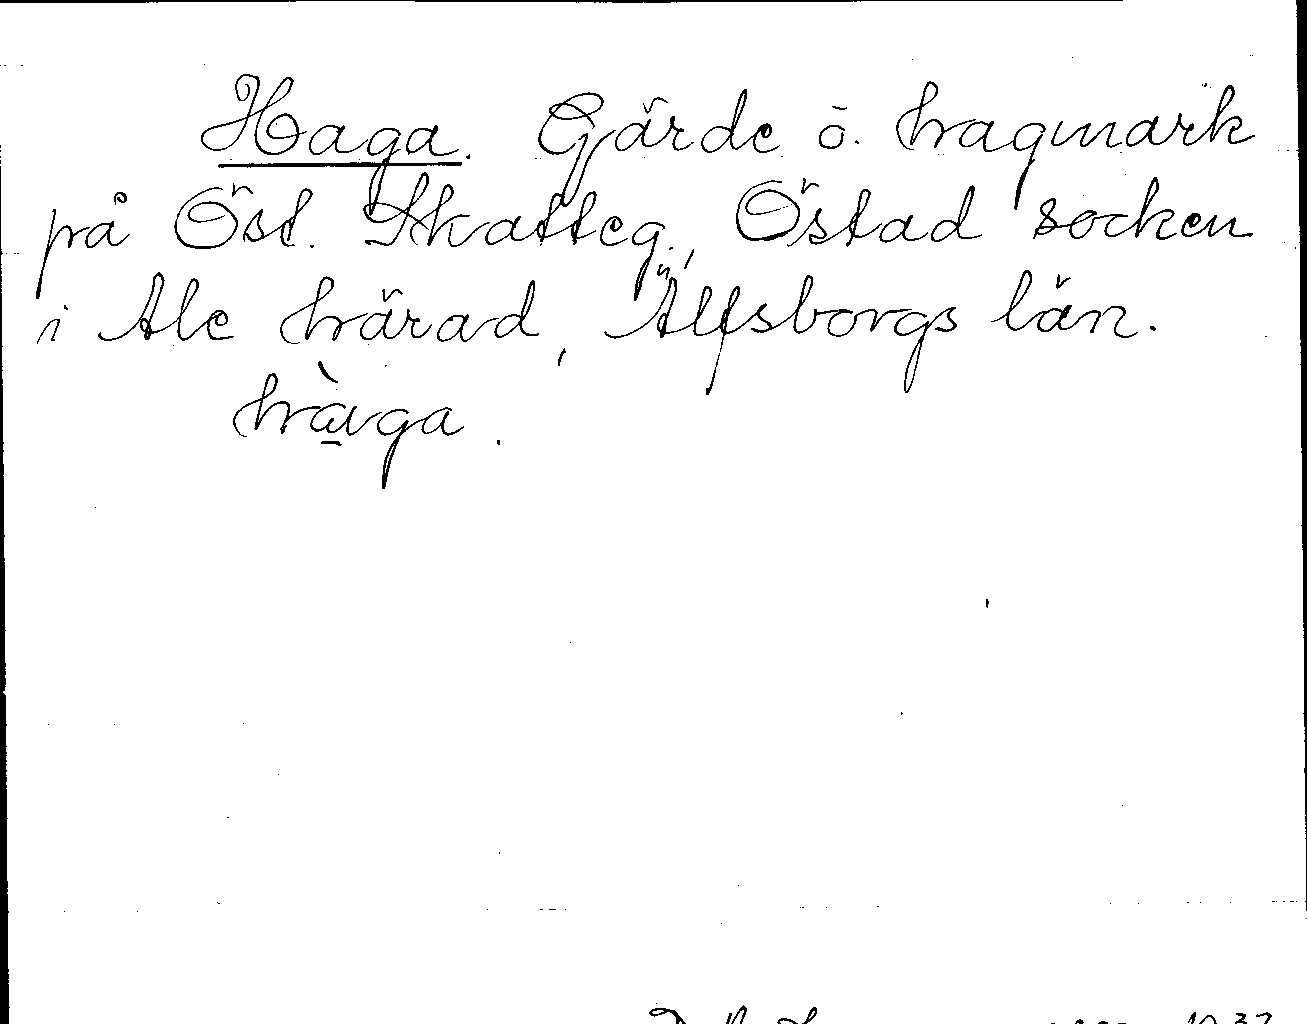 Haga. Gärde o. hagmark
på Öst. Skatteg., Östad socken
i Ale härad, Älfsborgs län.
hàga.